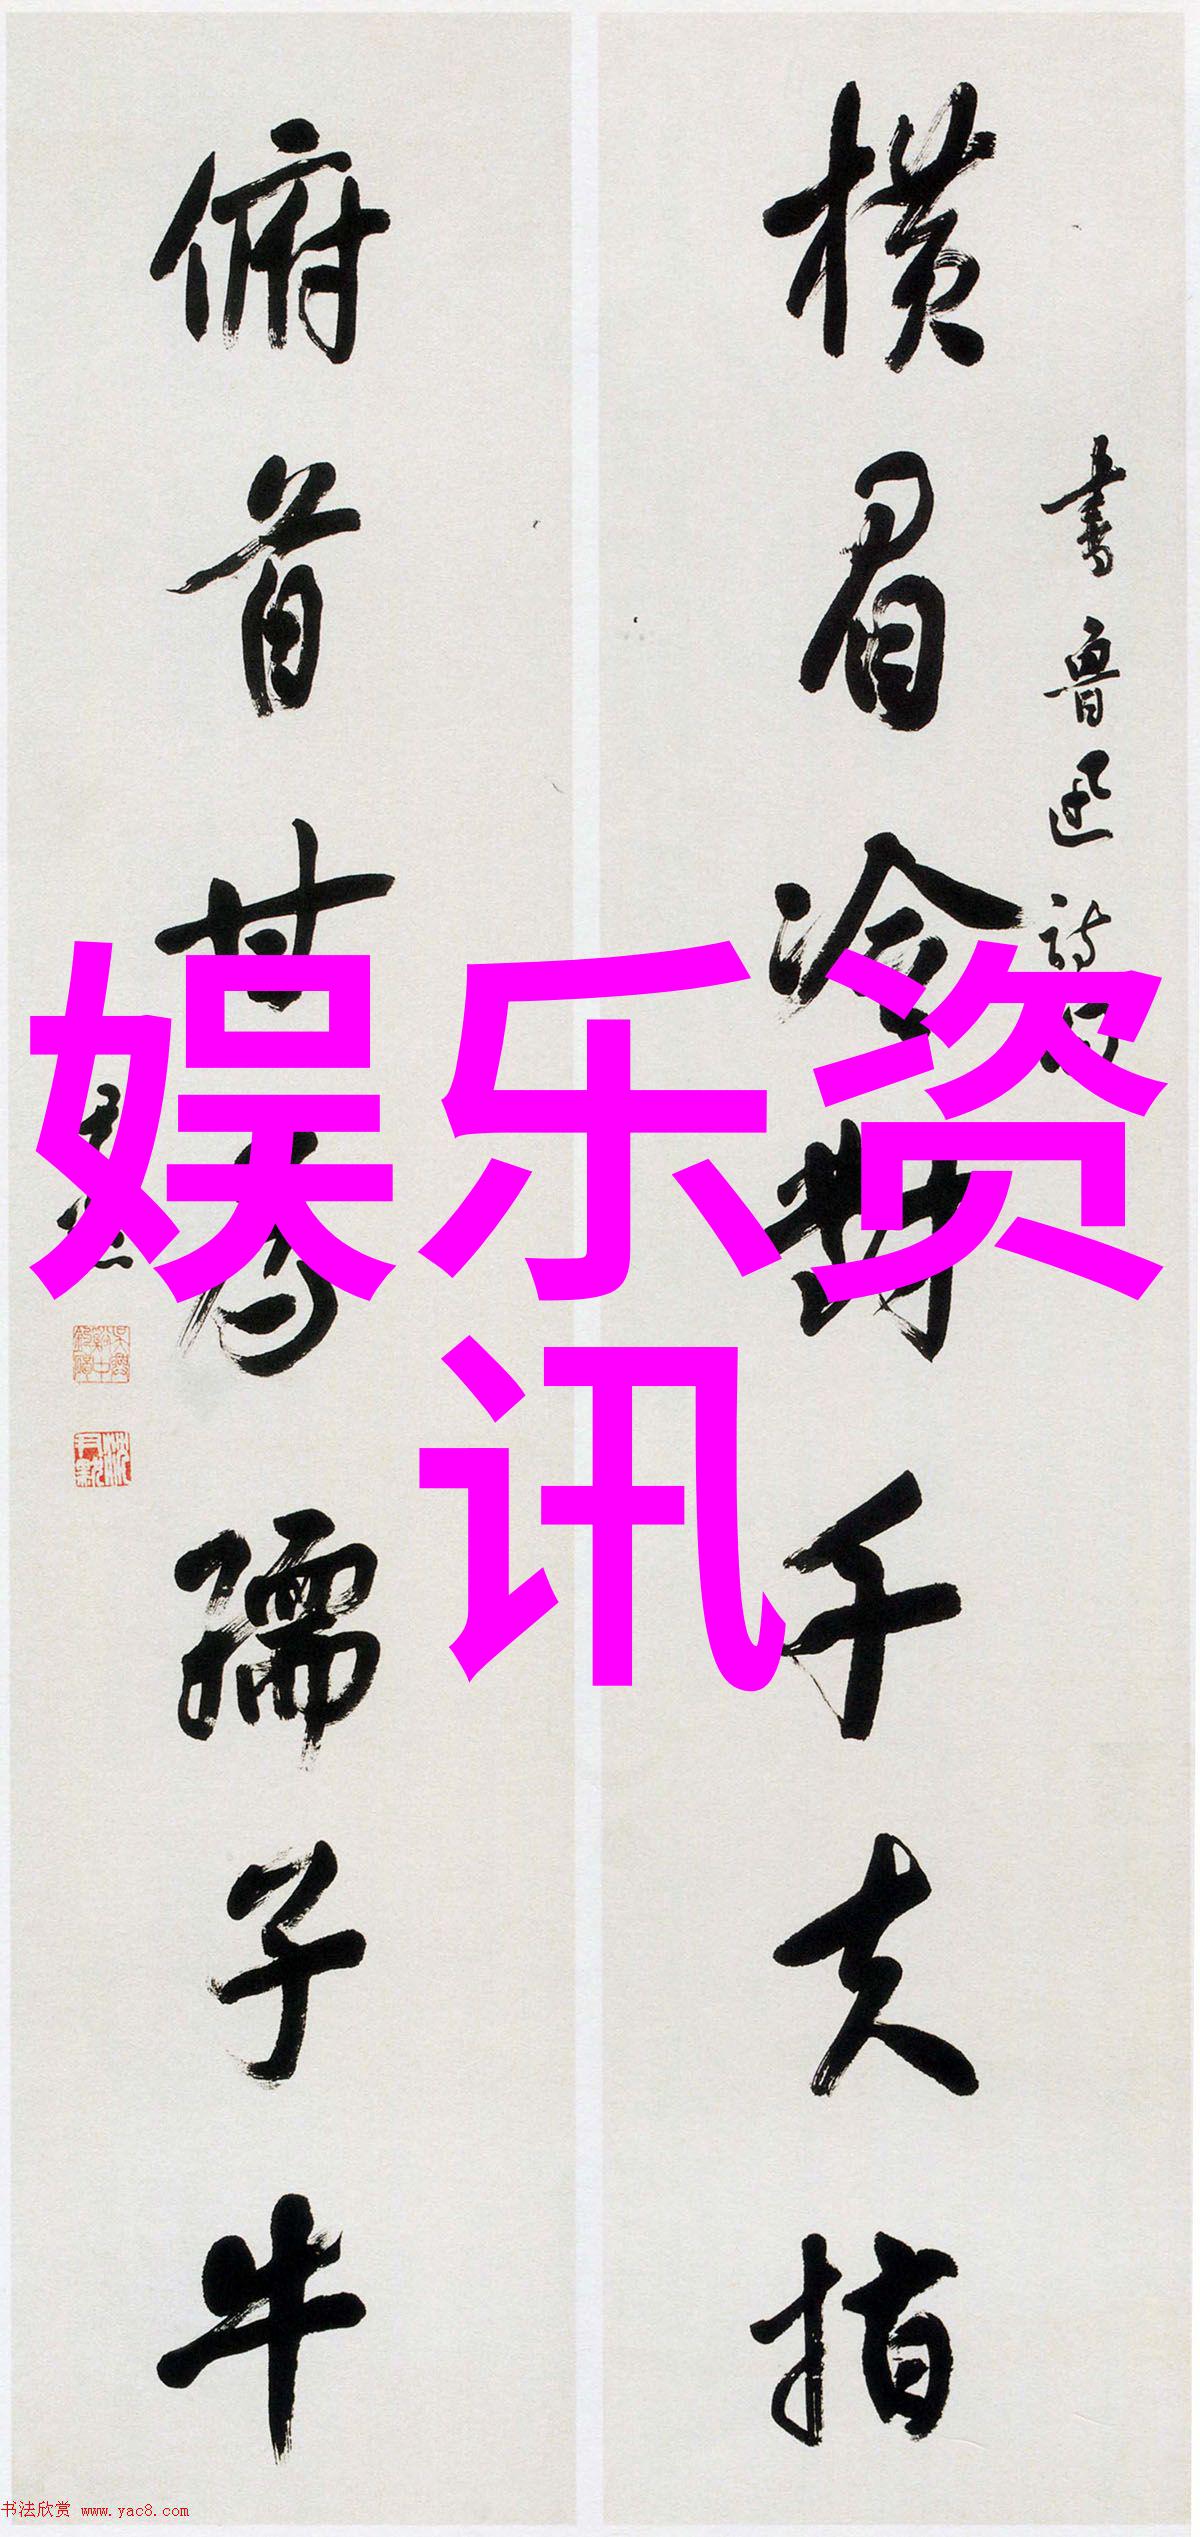 横眉冷对千夫指
书鲁迅诗句
俯首甘为孺子牛
尹默
娱乐资
讯
书法欣赏 www.yac8.com